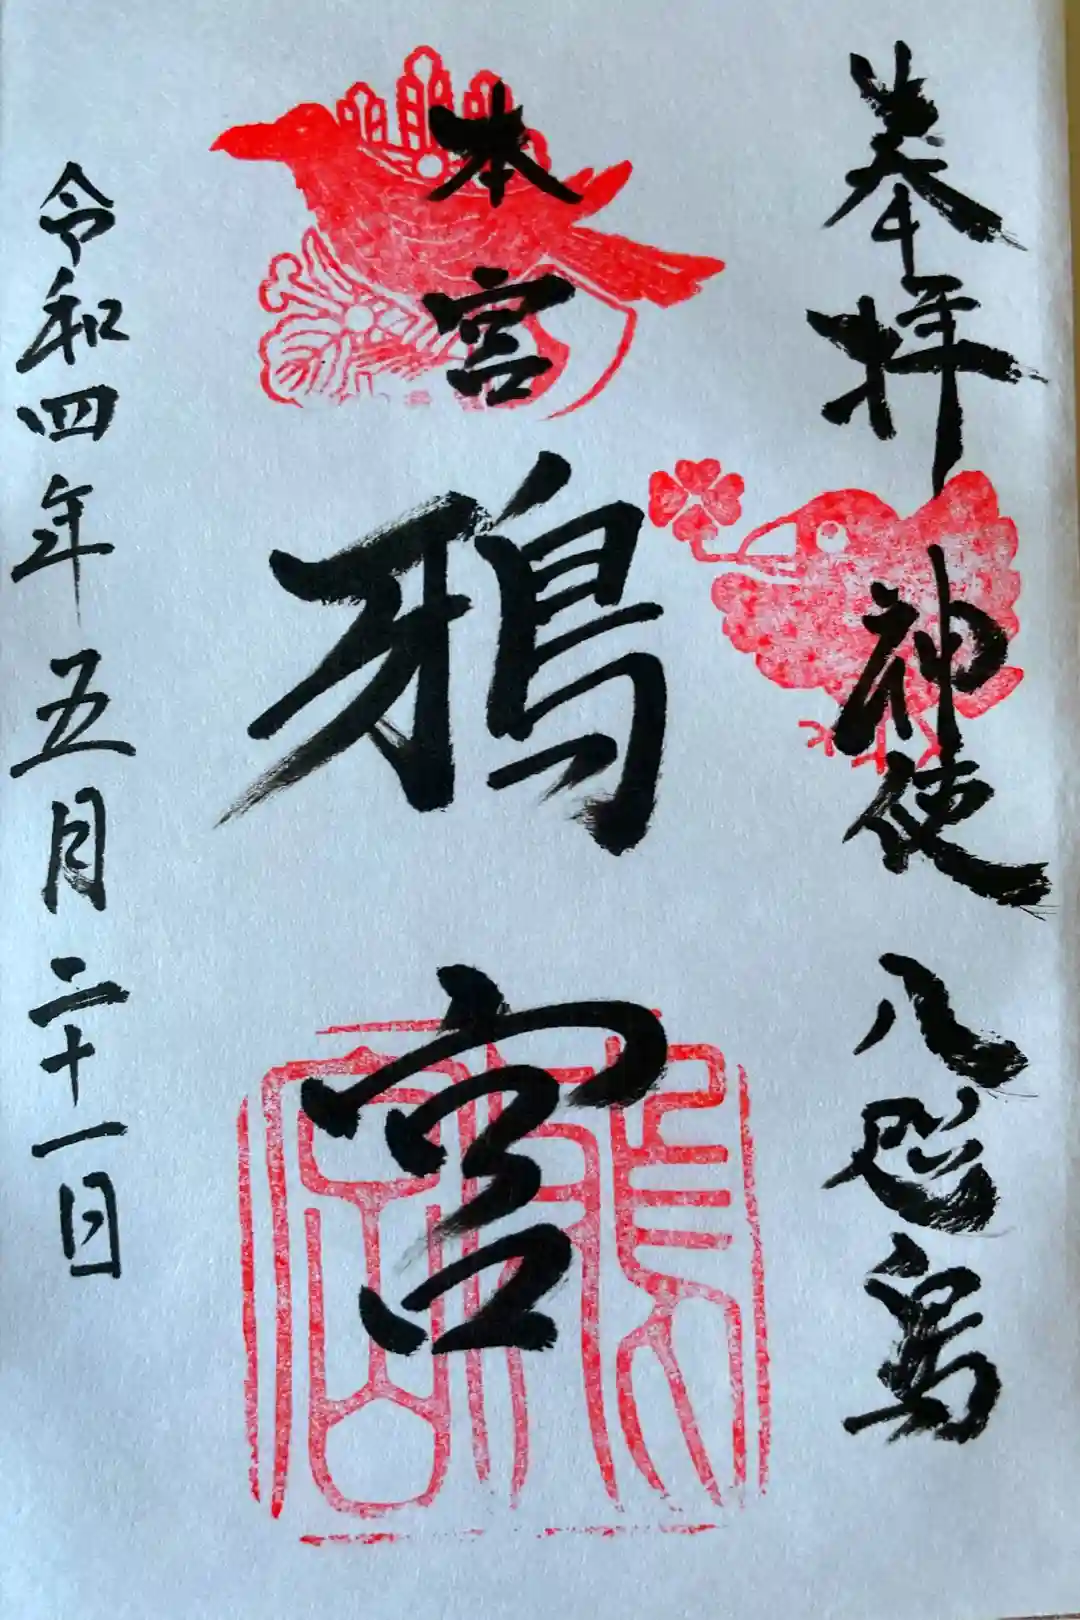 奉拝
神使
八咫烏
本宮
鴉宮
令和四年五月二十一日